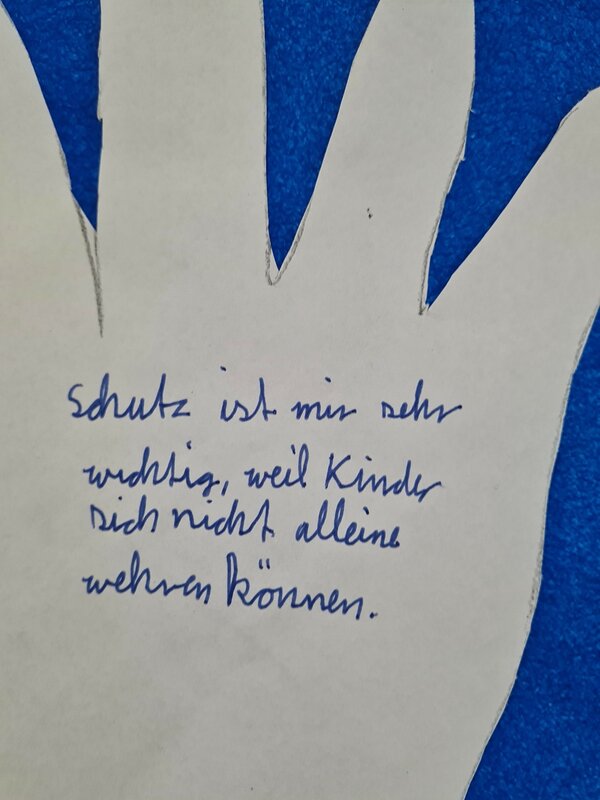 Schutz ist mir sehr
wichtig, weil Kinder
sich nicht alleine
wehren können.